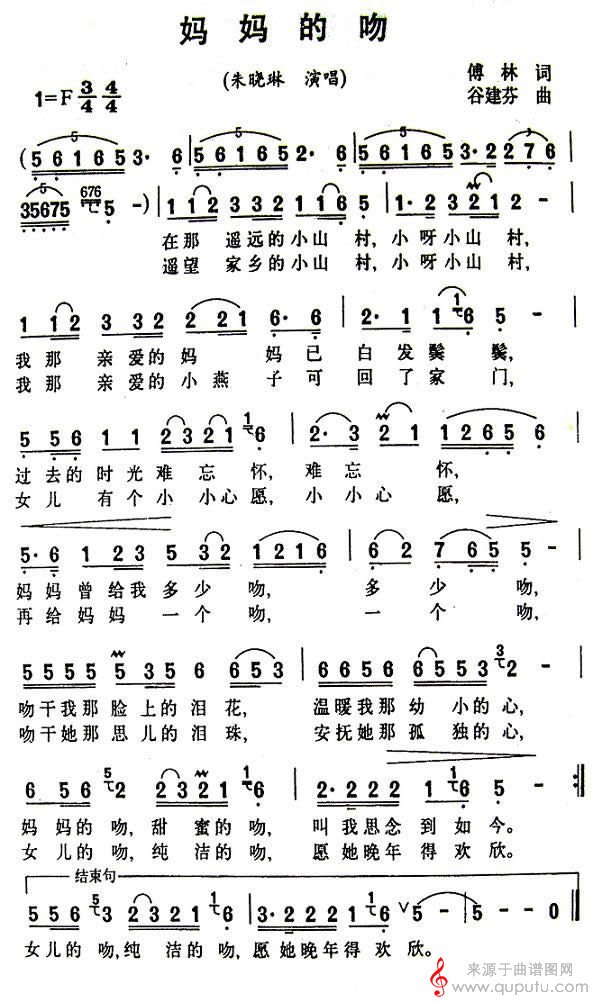 妈妈的吻
1=F 3/4 4/4
(朱晓琳 演唱)
傅林 词
谷建芬 曲
(5 6 1 6 5 3· 6 | 5 6 1 6 5 2· 6 | 5 6 1 6 5 3· 2 2 2 7 6 |
35675 676 5 -) | 1 1 2 3 3 2 1 1 1 6 5 | 1· 2 3 2 1 2 - |
在那 遥远的小山 村,小呀小山村,
遥望 家乡的小山 村,小呀小山村,
1 1 2 3 3 2 2 2 1 6· 6 | 2· 1 1 1 6 5 - |
我那 亲爱的妈 妈已 白发鬓 鬓,
我那 亲爱的小燕 子可 回了家 门,
5 5 6 1 1 2 3 2 1 1 6 | 2· 3 2 1 1 2 6 5 6 |
过去的时光难忘怀,难忘 怀,
女儿 有个小 小心愿,小小心 愿,
5· 6 1 2 3 5 3 2 1 2 1 6 | 6 2 7 6 5 5 - |
妈妈曾给我多少吻, 多少 吻,
再给妈妈 一个吻, 一个 吻,
5 5 5 5 5 3 5 6 6 5 3 | 6 6 5 6 6 5 5 3 3 2 - |
吻干我那脸上的泪花, 温暖我那幼小的心,
吻干她那思儿的泪珠, 安抚她那孤独的心,
6 5 6 5 2 2 3 2 1 1 6 | 2· 2 2 2 1 2 1 6 - :‖
妈妈的吻,甜蜜的吻, 叫我思念到如今。
女儿的吻,纯洁的吻, 愿她晚年得欢欣。
结束句
5 5 6 5 2 2 3 2 1 1 6 | 3· 2 2 2 1 2 1 6 ∨ 5 - | 5 - - 0 ‖
女儿的吻,纯洁的吻,愿她晚年得欢欣。
来源于曲谱网
www.qupu​tu.com